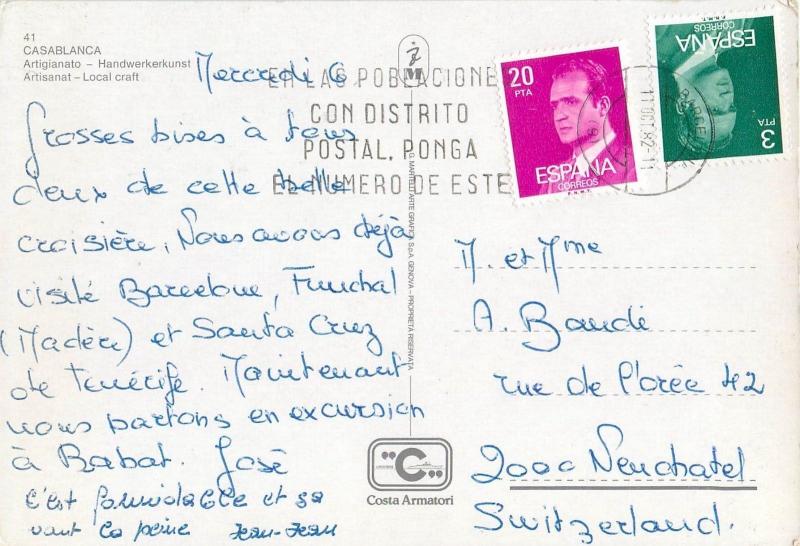 41
CASABLANCA
Artigianato – Handwerkerkunst
Artisanat – Local craft
Mercredi 6
Grosses bises à tous
deux de cette belle
croisière, Nous avons déjà
visité Barcelone, Funchal
(Madère) et Santa Cruz
de Ténérife. Maintenant
nous partons en excursion
à Rabat. José
C'est formidable et ça
vaut la peine Jean-Jean
M
G. MARTELLI ARTE GRAFICA S.p.A. GENOVA – PROPRIETÀ RISERVATA
EN LAS POBLACIONE
CON DISTRITO
POSTAL, PONGA
EL NUMERO DE ESTE
11 OCT. 82-11
20
PTA
ESPAÑA
CORREOS
F.N.M.T.
3
PTA
ESPAÑA
CORREOS
F.N.M.T.
M. et Mme
A. Bandi
rue de l'Orée 42
2000 Neuchatel
Switzerland.
"C"
Costa Armatori